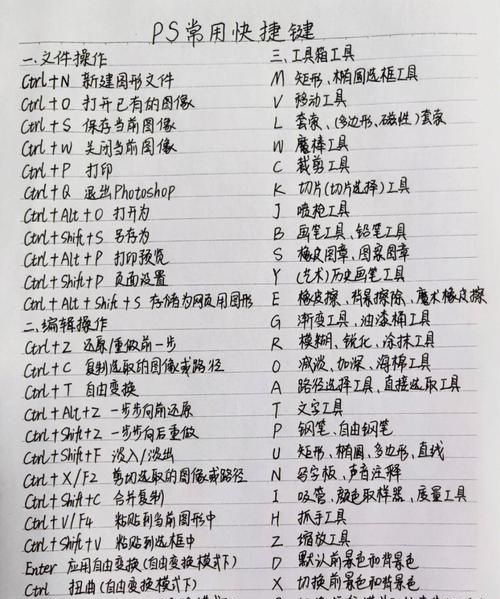 PS常用快捷键
一.文件操作
Ctrl+N 新建图形文件
Ctrl+O 打开已有的图像
Ctrl+S 保存当前图像
Ctrl+W 关闭当前图像
Ctrl+P 打印
Ctrl+Q 退出Photoshop
Ctrl+Alt+O 打开为
Ctrl+Shift+S 另存为
Ctrl+Alt+P 打印预览
Ctrl+Shift+P 页面设置
Ctrl+Alt+Shift+S 存储为网页用图形
二.编辑操作
Ctrl+Z 还原/重做前一步
Ctrl+C 复制选取的图像或路径
Ctrl+T 自由变换
Ctrl+Alt+Z 一步步向前还原
Ctrl+Shift+Z 一步步向后重做
Ctrl+Shift+F 淡入/淡出
Ctrl+X/F2 剪切选取的图像或路径
Ctrl+Shift+C 合并复制
Ctrl+V/F4 粘贴到当前图形中
Ctrl+Shift+V 粘贴到选框中
Enter 应用自由变换(自由变换模式下)
Ctrl 扭曲(自由变换模式下)
三.工具箱工具
M 矩形、椭圆选框工具
V 移动工具
L 套索、(多边形、磁性)套索
W 魔棒工具
C 裁剪工具
K 切片(切片选择)工具
J 喷枪工具
B 画笔工具、铅笔工具
S 橡皮图章、图案图章
Y (艺术)历史画笔工具
E 橡皮擦、背景擦除、魔术橡皮擦
G 渐变工具、油漆桶工具
R 模糊、锐化、涂抹工具
O 减淡、加深、海棉工具
A 路径选择工具、直接选取工具
T 文字工具
P 钢笔、自由钢笔
U 矩形、椭圆、多边形、直线
N 写字板、声音注释
I 吸管、颜色取样器、度量工具
H 抓手工具
Z 缩放工具
D 默认前景色和背景色
X 切换前景色和背景色